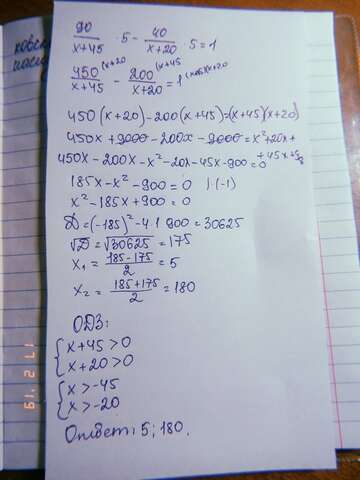 90/x+45 · 5 - 40/x+20 · 5 = 1
450/x+45 (x+20 - 200/x+20 (x+45 = 1 (x+45)(x+20
450(x+20)-200(x+45)=(x+45)(x+20)
450x+9000-200x-9000=x²+20x+
+45x+900
450x-200x-x²-20x-45x-900=0
185x-x²-900=0 |·(-1)
x²-185x+900=0
D=(-185)²-4·1·900=30625
√D=√30625=175
x₁=185-175/2=5
x₂=185+175/2=180
ОДЗ:
{x+45>0
{x+20>0
{x>-45
{x>-20
Ответ: 5; 180.
17 2'19